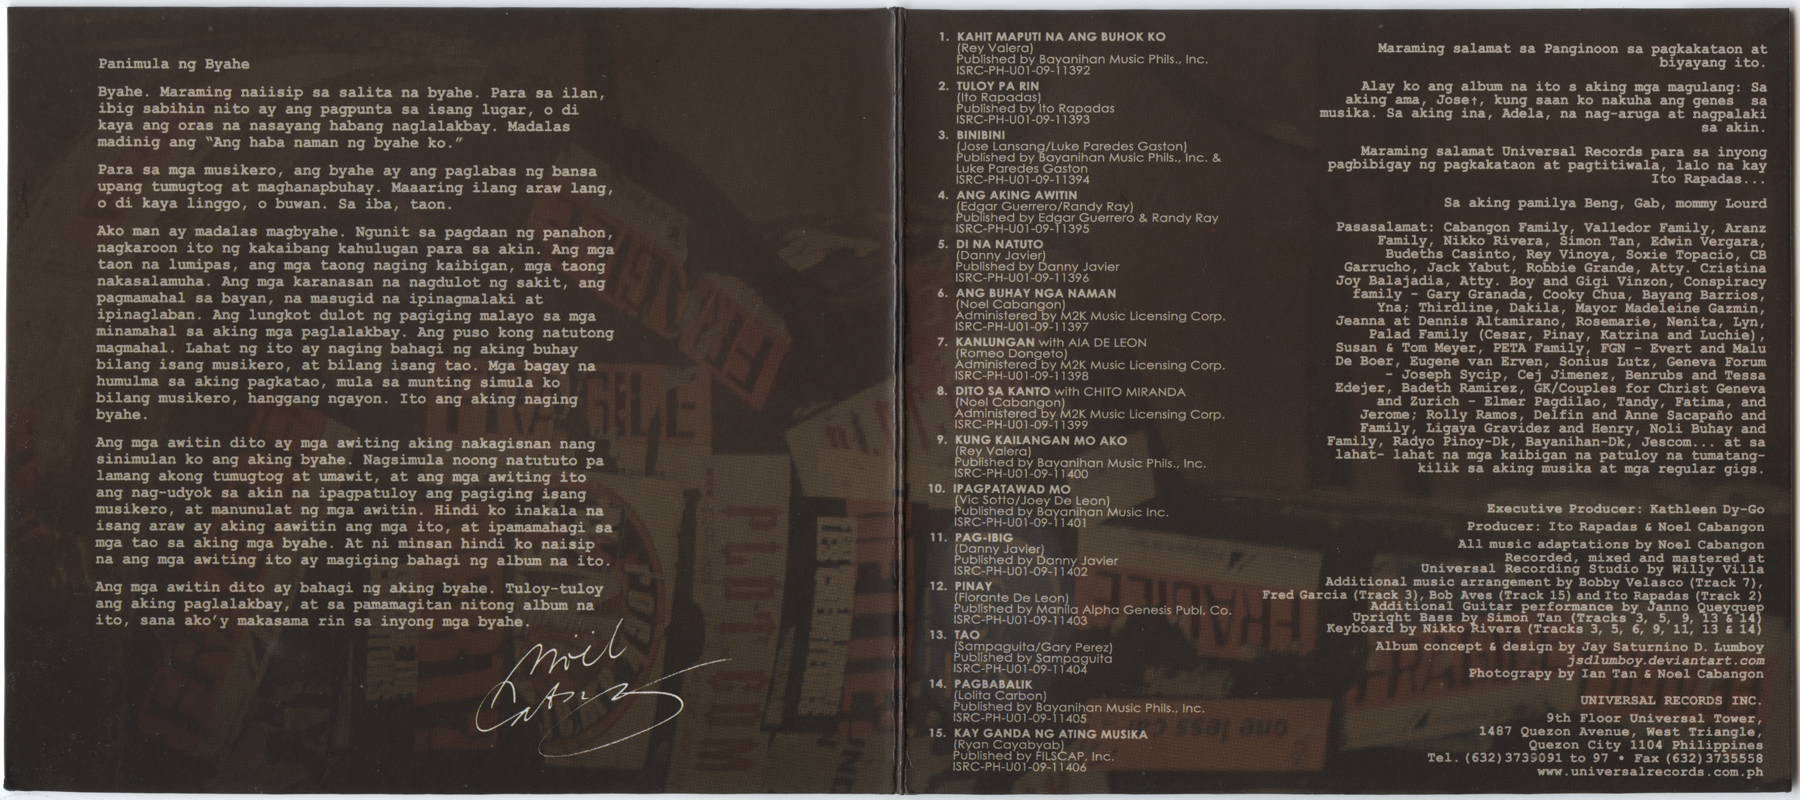 Panimula ng Byahe
Byahe. Maraming naiisip sa salita na byahe. Para sa ilan,
ibig sabihin nito ay ang pagpunta sa isang lugar, o di
kaya ang oras na nasayang habang naglalakbay. Madalas
madinig ang “Ang haba naman ng byahe ko.”
Para sa mga musikero, ang byahe ay ang paglabas ng bansa
upang tumugtog at maghanapbuhay. Maaaring ilang araw lang,
o di kaya linggo, o buwan. Sa iba, taon.
Ako man ay madalas magbyahe. Ngunit sa pagdaan ng panahon,
nagkaroon ito ng kakaibang kahulugan para sa akin. Ang mga
taon na lumipas, ang mga taong naging kaibigan, mga taong
nakasalamuha. Ang mga karanasan na nagdulot ng sakit, ang
pagmamahal sa bayan, na masugid na ipinagmalaki at
ipinaglaban. Ang lungkot dulot ng pagiging malayo sa mga
minamahal sa aking mga paglalakbay. Ang puso kong natutong
magmahal. Lahat ng ito ay naging bahagi ng aking buhay
bilang isang musikero, at bilang isang tao. Mga bagay na
humulma sa aking pagkatao, mula sa munting simula ko
bilang musikero, hanggang ngayon. Ito ang aking naging
byahe.
Ang mga awitin dito ay mga awiting aking nakagisnan nang
sinimulan ko ang aking byahe. Nagsimula noong natututo pa
lamang akong tumugtog at umawit, at ang mga awiting ito
ang nag-udyok sa akin na ipagpatuloy ang pagiging isang
musikero, at manunulat ng mga awitin. Hindi ko inakala na
isang araw ay aking aawitin ang mga ito, at ipamamahagi sa
mga tao sa aking mga byahe. At ni minsan hindi ko naisip
na ang mga awiting ito ay magiging bahagi ng album na ito.
Ang mga awitin dito ay bahagi ng aking byahe. Tuloy-tuloy
ang aking paglalakbay, at sa pamamagitan nitong album na
ito, sana ako’y makasama rin sa inyong mga byahe.
1. KAHIT MAPUTI NA ANG BUHOK KO
(Rey Valera)
Published by Bayanihan Music Phils., Inc.
ISRC-PH-U01-09-11392
2. TULOY PA RIN
(Ito Rapadas)
Published by Ito Rapadas
ISRC-PH-U01-09-11393
3. BINIBINI
(Jose Lansang/Luke Paredes Gaston)
Published by Bayanihan Music Phils., Inc. &
Luke Paredes Gaston
ISRC-PH-U01-09-11394
4. ANG AKING AWITIN
(Edgar Guerrero/Randy Ray)
Published by Edgar Guerrero & Randy Ray
ISRC-PH-U01-09-11395
5. DI NA NATUTO
(Danny Javier)
Published by Danny Javier
ISRC-PH-U01-09-11396
6. ANG BUHAY NGA NAMAN
(Noel Cabangon)
Administered by M2K Music Licensing Corp.
ISRC-PH-U01-09-11397
7. KANLUNGAN with AIA DE LEON
(Romeo Dongeto)
Administered by M2K Music Licensing Corp.
ISRC-PH-U01-09-11398
8. DITO SA KANTO with CHITO MIRANDA
(Noel Cabangon)
Administered by M2K Music Licensing Corp.
ISRC-PH-U01-09-11399
9. KUNG KAILANGAN MO AKO
(Rey Valera)
Published by Bayanihan Music Phils., Inc.
ISRC-PH-U01-09-11400
10. IPAGPATAWAD MO
(Vic Sotto/Joey De Leon)
Published by Bayanihan Music Inc.
ISRC-PH-U01-09-11401
11. PAG-IBIG
(Danny Javier)
Published by Danny Javier
ISRC-PH-U01-09-11402
12. PINAY
(Florante De Leon)
Published by Manila Alpha Genesis Publ. Co.
ISRC-PH-U01-09-11403
13. TAO
(Sampaguita/Gary Perez)
Published by Sampaguita
ISRC-PH-U01-09-11404
14. PAGBABALIK
(Lolita Carbon)
Published by Bayanihan Music Phils., Inc.
ISRC-PH-U01-09-11405
15. KAY GANDA NG ATING MUSIKA
(Ryan Cayabyab)
Published by FILSCAP, Inc.
ISRC-PH-U01-09-11406
Maraming salamat sa Panginoon sa pagkakataon at
biyayang ito.
Alay ko ang album na ito s aking mga magulang: Sa
aking ama, Jose†, kung saan ko nakuha ang genes sa
musika. Sa aking ina, Adela, na nag-aruga at nagpalaki
sa akin.
Maraming salamat Universal Records para sa inyong
pagbibigay ng pagkakataon at pagtitiwala, lalo na kay
Ito Rapadas...
Sa aking pamilya Beng, Gab, mommy Lourd
Pasasalamat: Cabangon Family, Valledor Family, Aranz
Family, Nikko Rivera, Simon Tan, Edwin Vergara,
Budeths Casinto, Rey Vinoya, Soxie Topacio, CB
Garrucho, Jack Yabut, Robbie Grande, Atty. Cristina
Joy Balajadia, Atty. Boy and Gigi Vinzon, Conspiracy
family - Gary Granada, Cooky Chua, Bayang Barrios,
Yna; Thirdline, Dakila, Mayor Madeleine Gazmin,
Jeanna at Dennis Altamirano, Rosemarie, Nenita, Lyn,
Palad Family (Cesar, Pinay, Katrina and Luchie),
Susan & Tom Meyer, PETA Family, FGN - Evert and Malu
De Boer, Eugene van Erven, Sonius Lutz, Geneva Forum
- Joseph Sycip, Cej Jimenez, Benrubs and Tessa
Edejer, Badeth Ramirez, GK/Couples for Christ Geneva
and Zurich - Elmer Pagdilao, Tandy, Fatima, and
Jerome; Rolly Ramos, Delfin and Anne Sacapaño and
Family, Ligaya Gravidez and Henry, Noli Buhay and
Family, Radyo Pinoy-Dk, Bayanihan-Dk, Jescom... at sa
lahat- lahat na mga kaibigan na patuloy na tumatang-
kilik sa aking musika at mga regular gigs.
Executive Producer: Kathleen Dy-Go
Producer: Ito Rapadas & Noel Cabangon
All music adaptations by Noel Cabangon
Recorded, mixed and mastered at
Universal Recording Studio by Willy Villa
Additional music arrangement by Bobby Velasco (Track 7),
Fred Garcia (Track 3), Bob Aves (Track 15) and Ito Rapadas (Track 2)
Additional Guitar performance by Janno Queyquep
Upright Bass by Simon Tan (Tracks 3, 5, 9, 13 & 14)
Keyboard by Nikko Rivera (Tracks 3, 5, 6, 9, 11, 13 & 14)
Album concept & design by Jay Saturnino D. Lumboy
jsdlumboy.deviantart.com
Photograpy by Ian Tan & Noel Cabangon
UNIVERSAL RECORDS INC.
9th Floor Universal Tower,
1487 Quezon Avenue, West Triangle,
Quezon City 1104 Philippines
Tel. (632)3739091 to 97 • Fax (632)3735558
www.universalrecords.com.ph
FRAGILE
FRAGILE
one less car